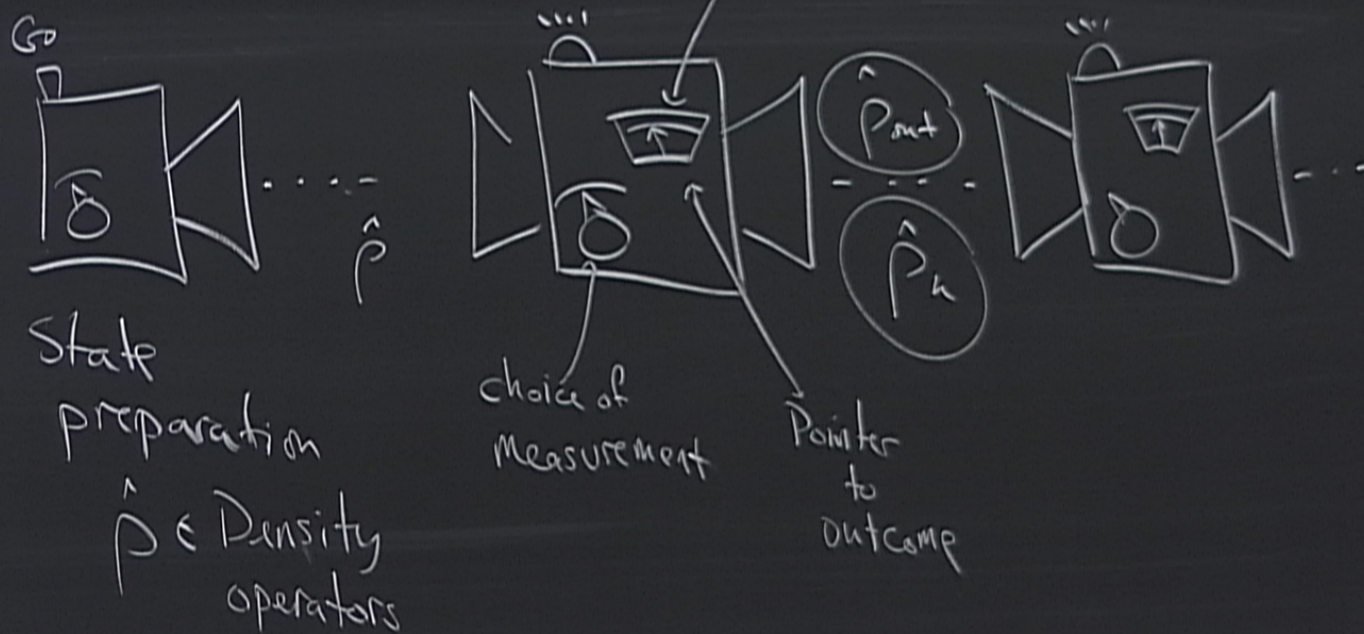 Go
ρ̂
State
preparation
ρ̂ ∈ Density
operators
choice of
measurement
Pointer
to
outcome
ρ̂out
ρ̂k